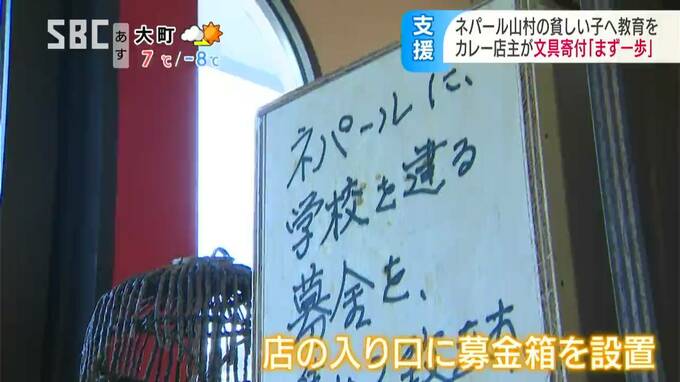 SBC
あす
大町
7℃/-8℃
支援
ネパール山村の貧しい子へ教育を
カレー店主が文具寄付「まず一歩」
ネパールに、
学校を建る
募金を、
店の入り口に募金箱を設置